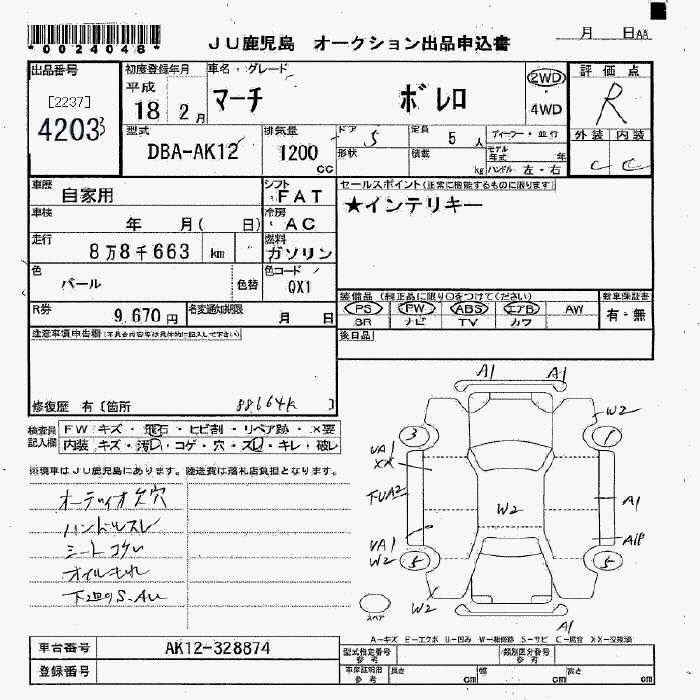 *0024048*
JU鹿児島 オークション出品申込書
月 日AA
出品番号
[2237]
4203
初度登録年月
平成
18 2月
車名・グレード
マーチ ボレロ
2WD
・
4WD
評価点
R
外装 内装
C C
型式
DBA-AK12
排気量
1200
cc
ドア 5
定員 5人
ディーラー・並行
形状
積載 kg
モデル年式 年
ハンドル 左・右
車歴
自家用
シフト
FAT
セールスポイント(正常に機能するものに限ります)
★インテリキー
車検
年 月( 日)
冷房
AC
走行
8万8千663 km
燃料
ガソリン
色
パール
色替
色コード
QX1
R券
9,670円
名変通知期限
月 日
装備品(純正品に限り○をつけてください)
PS PW ABS エアB AW
SR ナビ TV カワ
新車保証書
有・無
後日品
注意事項申告欄
修復歴 有〔箇所 〕
88664K
検査員記入欄
FW キズ・飛石・ヒビ割・リペア跡・×要
内装 キズ・汚れ・コゲ・穴・スレ・キレ・破レ
※現車はJU鹿児島にあります。陸送費は落札店負担となります。
オーディオ欠穴
ハンドルスレ
シートコゲ
オイルもれ
下廻りS.AU
A1 A1
W2
3 1
UA1
XX
下UA2
W2
A1
A1
UA1
W2
5 5
W2
A1
スペア
A－キズ E－エクボ U－凹み W－補修跡 S－サビ C－腐食 XX－交換済
車台番号 AK12-328874
登録番号
型式指定番号
参考
類別区分番号
参考
車庫証明用
参考
長さ cm 幅 cm 高さ cm